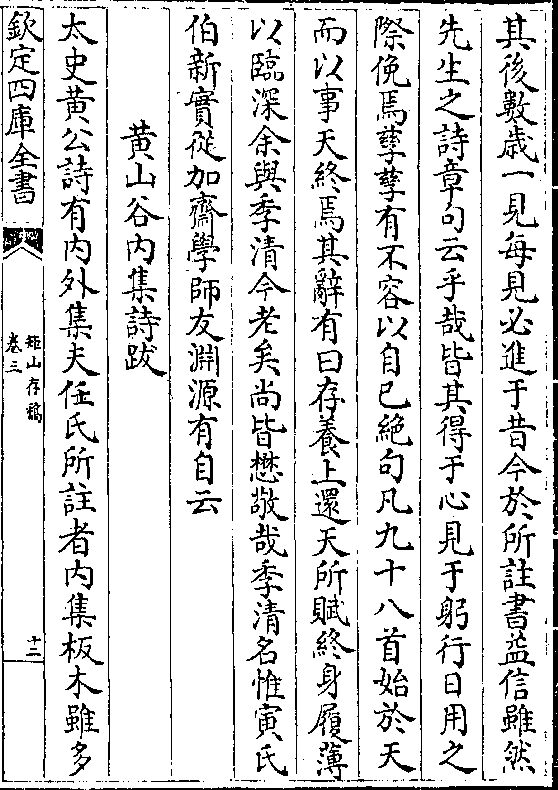 其後數歲一見每見必進于昔今於所註書益信雖然
先生之詩章句云乎哉皆其得于心見于躬行日用之
際俛焉孳孳有不容以自已絶句凡九十八首始於天
而以事天終焉其辭有曰存養上還天所賦終身履薄
以臨深余與季清今老矣尚皆懋敬哉季清名惟寅氏
伯新實從加齋學師友淵源有自云
黄山谷内集詩跋
太史黄公詩有内外集夫任氏所註者内集板木雖多
欽定四庫全書
矩山存稿
卷三
十二